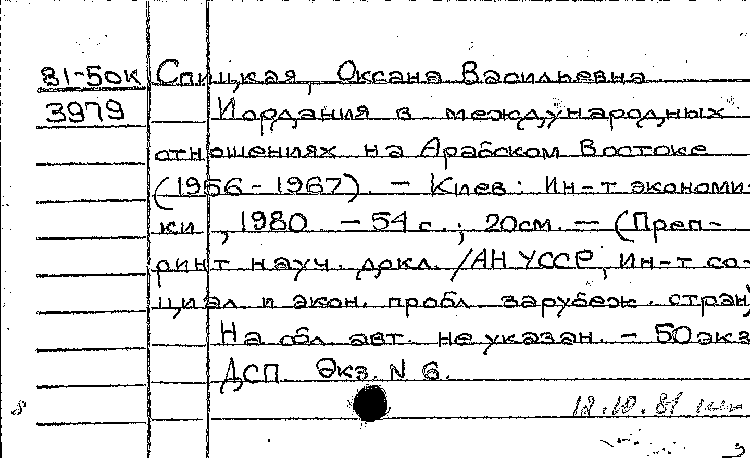 81-50к Спицкая, Оксана Васильевна
3979 Иордания в международных
отношениях на Арабском Востоке
(1956-1967). - Киев: Ин-т экономи-
ки, 1980 - 54 с.; 20см. - (Преп-
ринт науч. докл. /АН УССР, Ин-т со-
циал. и экон. пробл. зарубеж. стран)
На обл. авт. не указан. - 50 экз
ДСП Экз. N 6.
8 12.10.81